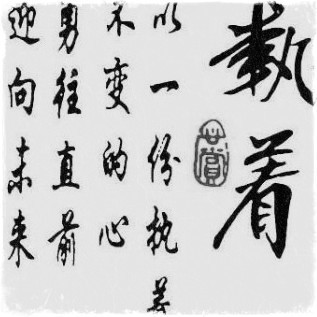 執着
以一份执着
不变的心
勇往直前
迎向未来